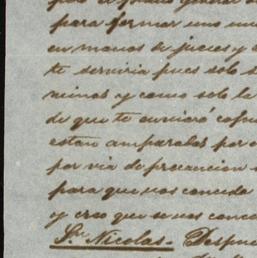 para formar uno
en manos de jueces y
te serviria pues solo
minos y como solo la
de que te enviaré
estan amparalos por
por via de precaucion
para que nos conceda
y creo que se nos conce
Sn. Nicolas. Despue